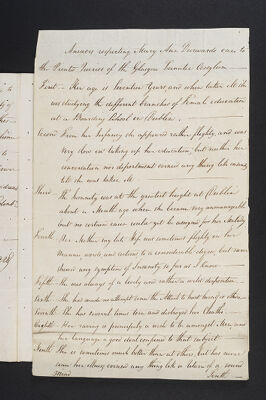 Answers respecting Mary Ann case to
the Queries of the Glasgow Lunatic Asylum
First - Her age is Seventeen Years, and when taken ill she
was studying the different branches of Female education
at a Boarding School in Dublin
Second From her Infancy she appeared rather flighty, and was
very slow in taking up her education, but neither her
conversation nor deportment any thing like insanity
till she was taken ill
Third The Insanity was at the greatest height at Dublin
about a Month ago when she became very unmanageable
but no certain cause could yet be assigned for her Malady
Fourth Her Mother my late Wife was sometimes flighty in her
manner words and actions to a considerable degree, but never
shewed any symptom of Insanity so far as I know
Fifth She was always of a lively and rather a disposition
Sixth She has made no attempt some she tried to hurt herself or others
Seventh She has several times torn and destroyed her Cloaths
Eighth Her raving is principally a wish to be amongst Men, and
her language a good deal confined to that subject
Ninth She is sometimes much better than at others, but has never
since her illness any thing like a return of a sound
Mind
Tenth